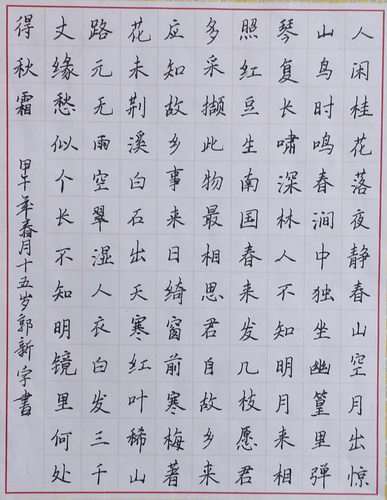 人闲桂花落夜静春山空月出惊
山鸟时鸣春涧中独坐幽篁里弹
琴复长啸深林人不知明月来相
照红豆生南国春来发几枝愿君
多采撷此物最相思君自故乡来
应知故乡事来日绮窗前寒梅著
花未荆溪白石出天寒红叶稀山
路元无雨空翠湿人衣白发三千
丈缘愁似个长不知明镜里何处
得秋霜 甲午年春月十五岁郭新字書